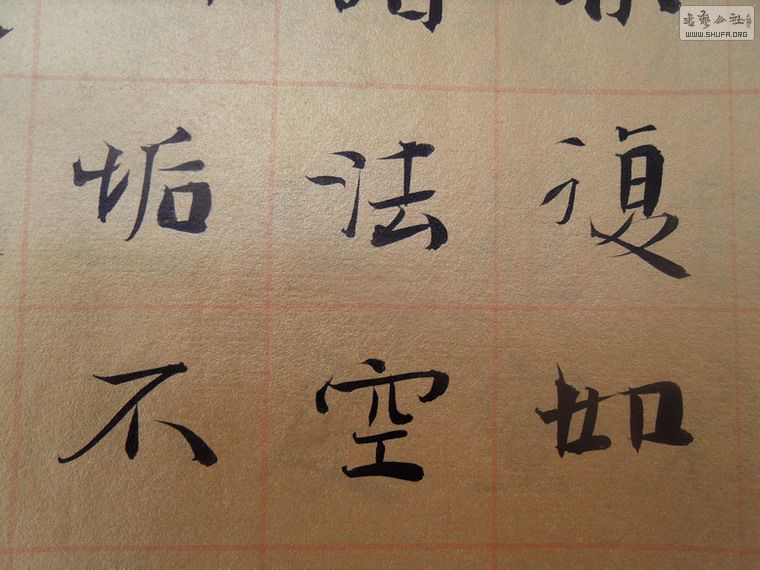 復如
法空
垢不
书艺公社
WWW.SHUFA.ORG